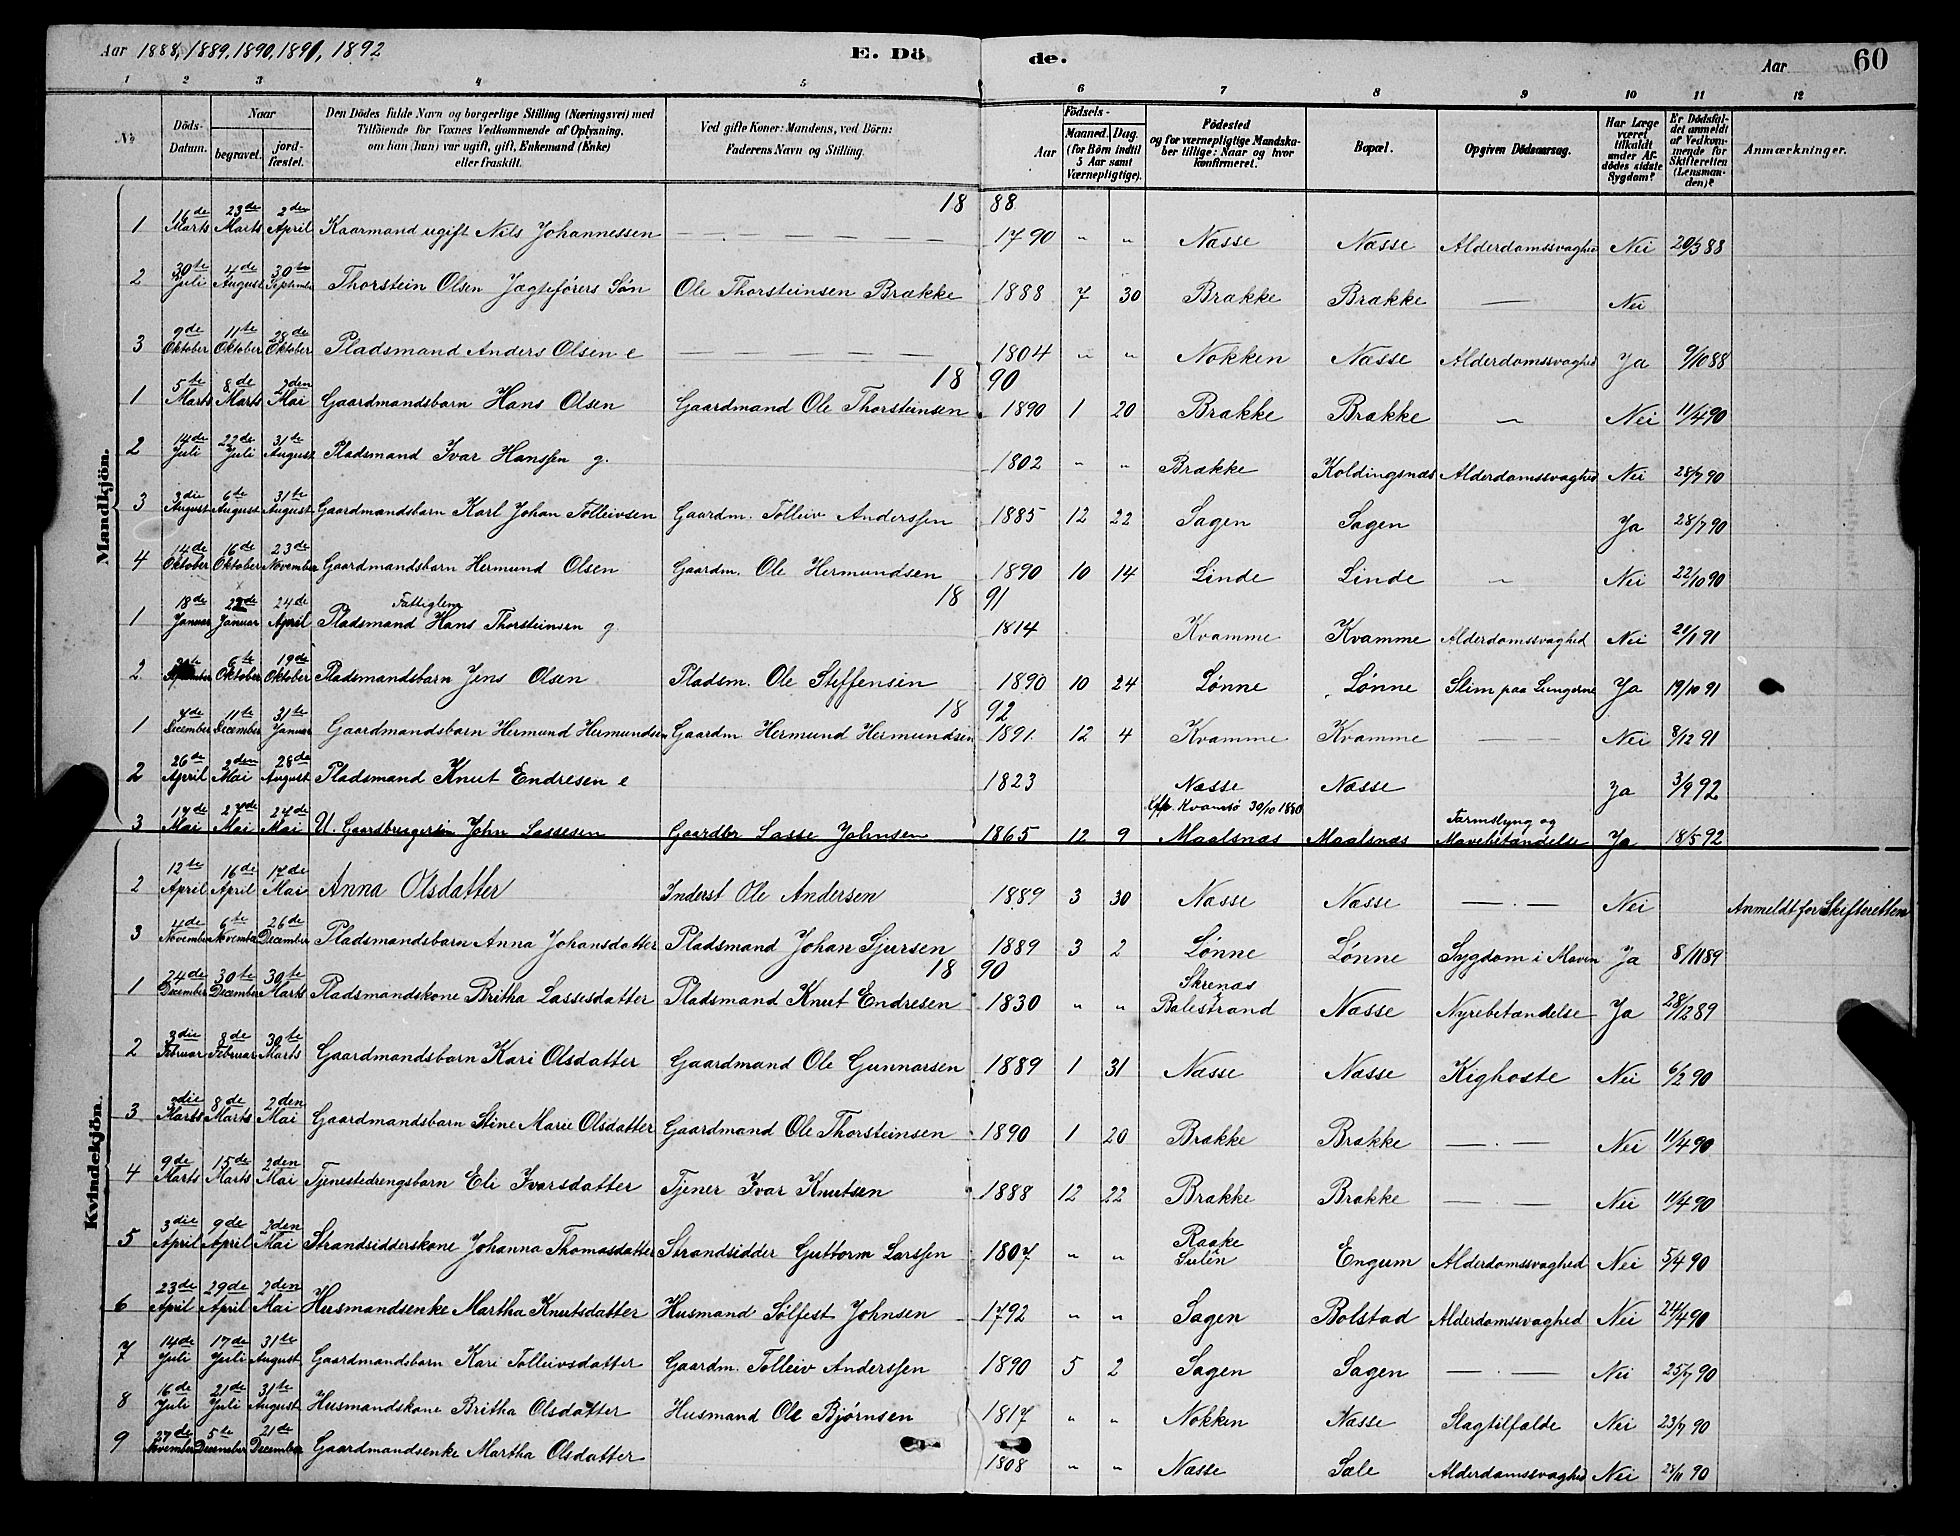 Aar 1888, 1889, 1890, 1891, 1892 E. Döde. Aar 60
1 2 3 4 5 6 7 8 9 10 11 12
No. Döds-Datum. Naar begravet. jordfæstet. Den Dödes fulde Navn og borgerlige Stilling (Næringsvei) med Tilföiende for Voxnes Vedkommende af Oplysning, om han (hun) var ugift, gift, Enkemand (Enke) eller fraskilt. Ved gifte Koner: Mandens, ved Börn: Faderens Navn og Stilling. Aar Födsels- Maaned. Dag. (for Börn indtil 5 Aar samt Værnepligtige). Födested og for værnepligtige Mandskaber tillige: Naar og hvor konfirmeret. Bopæl. Opgiven Dödsaarsag. Har Læge været tilkaldt under Afdödes sidste Sygdom? Er Dödsfaldet anmeldt af Vedkommende for Skifteretten (Lensmanden)? Anmærkninger.
Mandkjön.
18 88
1 16de Marts 23de Marts 2den April Kaarmand ugift Nils Johannessen — — — 1790 " " Næsse Næsse Alderdomssvaghed Nei 20/3 88
2 30te Juli 4de August 30te September Thorstein Olsen Jægteførers Søn Ole Thorsteinsen Brække 1888 7 30 Brække Brække — Nei
3 9de Oktober 11te Oktober 28de Oktober Pladsmand Anders Olsen e — — — 1804 " " Nokken Næsse Alderdomssvaghed Ja 9/10 88
18 90
1 5te Marts 8de Marts 2den Mai Gaardmandsbarn Hans Olsen Gaardmand Ole Thorsteinsen 1890 1 20 Brække Brække — Nei 11/4 90
2 14de Juli 22de Juli 31te August Pladsmand Ivar Hanssen g. 1802 " " Brække Koldingsnæs Alderdomssvaghed Nei 28/7 90
3 3die August 6te August 31te August Gaardmandsbarn Karl Johan Tolleivsen Gaardm. Tolleiv Anderssen 1885 12 22 Sagen Sagen Ja 28/7 90
4 14de Oktober 16de Oktober 23de November Gaardmandsbarn Hermund Olsen Gaardm. Ole Hermundsen 1890 10 14 Linde Linde — Nei 22/10 90
18 91
Fattiglem
1 18de Januar 22de Januar 24de April Pladsmand Hans Thorsteinsen g. 1814 Kvamme Kvamme Alderdomssvaghed Nei 21/1 91
2. September 6te Oktober 19de Oktober Pladsmandsbarn Jens Olsen Pladsm. Ole Steffensen 1890 10 24 Lønne Lønne Slim paa Lungerne Ja 19/10 91
18 92
1 4de December 11te December 31te Januar Gaardmandsbarn Hermund Hermundsen Gaardm Hermund Hermundsen 1891 12 4 Kvamme Kvamme — Nei 8/12 91
2 26de April 2den Mai 28de August Pladsmand Knut Endresen e 1823 Næsse Næsse Ja 3/9 92
3 17de Mai 24de Mai 24de Mai U. Gaardbrugersøn John Lassesen Gaardbr Lasse Johnsen 1865 12 9 Kvamsø 30/10 1880 Maalsnæs Maalsnæs Tarmslyng og Mavebetændelse Ja 18/5 92
Kvindekjön.
2 12te April 16de April 17de Mai Anna Olsdatter Inderst Ole Andersen 1889 3 30 Næsse Næsse — Nei Anmeldt for Skifteretten
3 4de November 6te November 26de December Pladsmandsbarn Anna Johansdatter Pladsmand Johan Sjursen 1889 3 2 Lønne Lønne Sygdom i Maven Ja 8/11 89
18 90
1 24de December 30te December 30te Marts Pladsmandskone Britha Lassesdatter Pladsmand Knut Endresen 1830 " " Skrenæs Balestrand Næsse Nyrebetændelse Ja 28/12 89
2 3die Februar 8de Februar 30te Marts Gaardmandsbarn Kari Olsdatter Gaardmand Ole Gunnarsen 1889 1 31 Næsse Næsse Kighoste Nei 6/2 90
3 3die Marts 8de Marts 2den Mai Gaardmandsbarn Stine Marie Olsdatter Gaardmand Ole Thorsteinsen 1890 1 20 Brække Brække — Nei 11/4 90
4 9de Marts 15de Marts 2den Mai Tjenestedrengsbarn Eli Ivarsdatter Tjener Ivar Knutsen 1888 12 22 Brække Brække — Nei 11/4 90
5 3die April 9de April 2den Mai Strandsidderskone Johanna Thomasdatter Strandsidder Guttorm Larssen 1807 " " Raake Sulen Engum Alderdomssvaghed Nei 5/4 90
6 23de April 29de April 2den Mai Husmandsenke Martha Knutsdatter Husmand Sølfest Johnsen 1792 " " Sagen Bolstad Alderdomssvaghed Nei 24/4 90
7 14de Juli 17de Juli 31te August Gaardmandsbarn Kari Tolleivsdatter Gaardm. Tolleiv Anderssen 1890 5 2 Sagen Sagen — Nei 25/7 90
8 16de Juli 21de Juli 31te August Husmandskone Britha Olsdatter Husmand Ole Bjørnsen 1817 " " Nokken Næsse Slagtilfælde Nei 23/7 90
9 27de November 5te December 21de December Gaardmandsenke Martha Olsdatter 1808 " " Næsse Sæle Alderdomssvaghed Nei 28/11 90